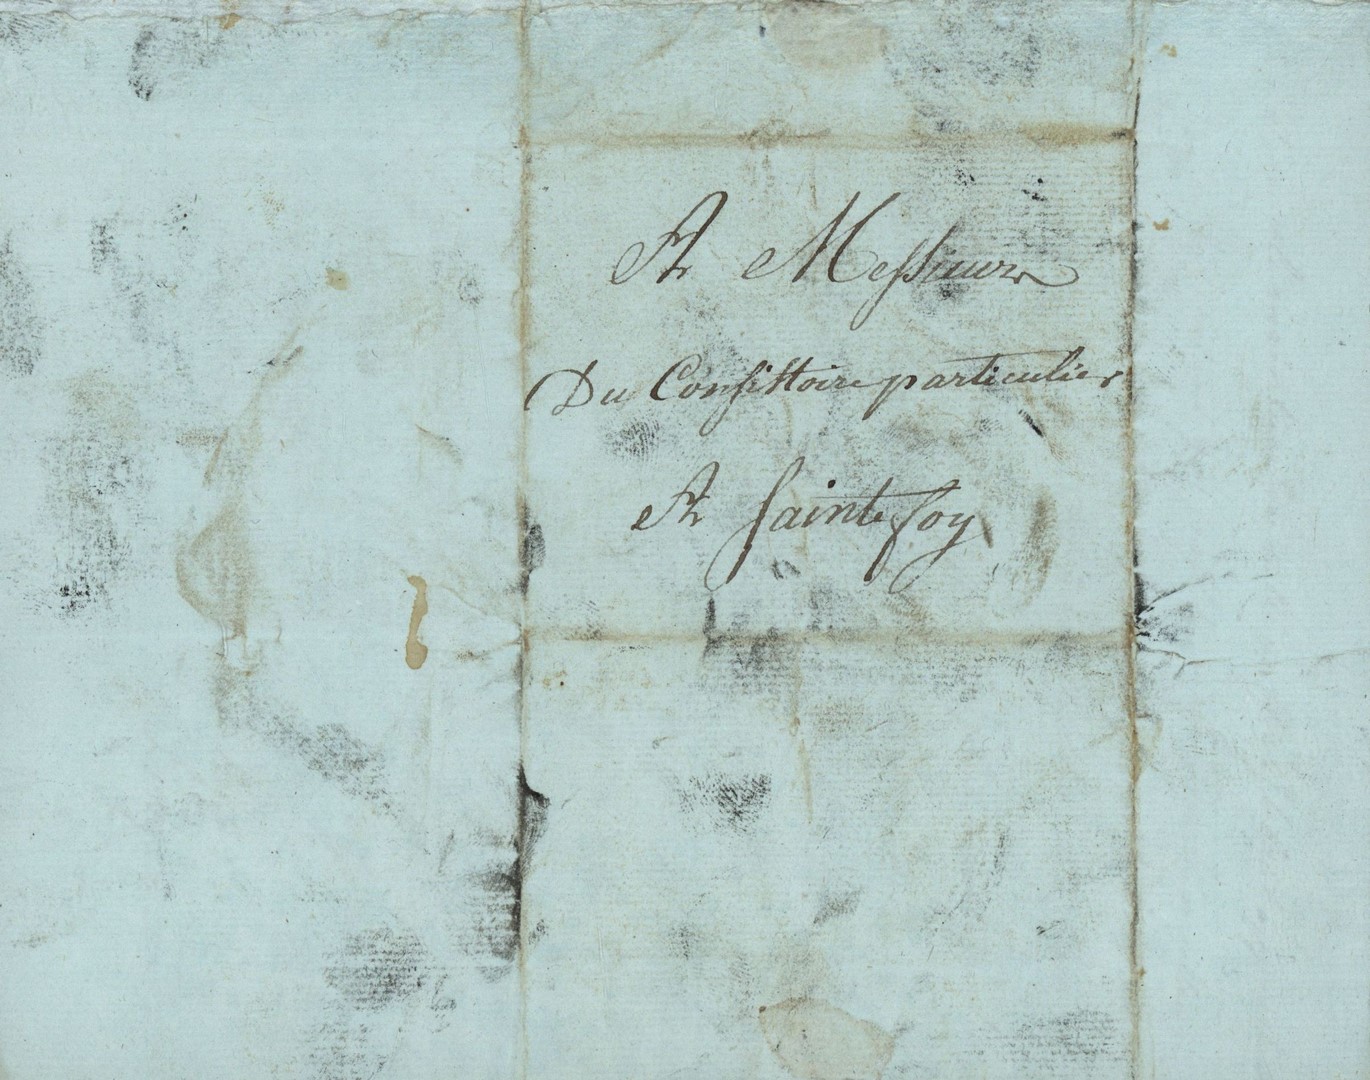 A Messieurs
Du Consistoire particulier
A sainte foy